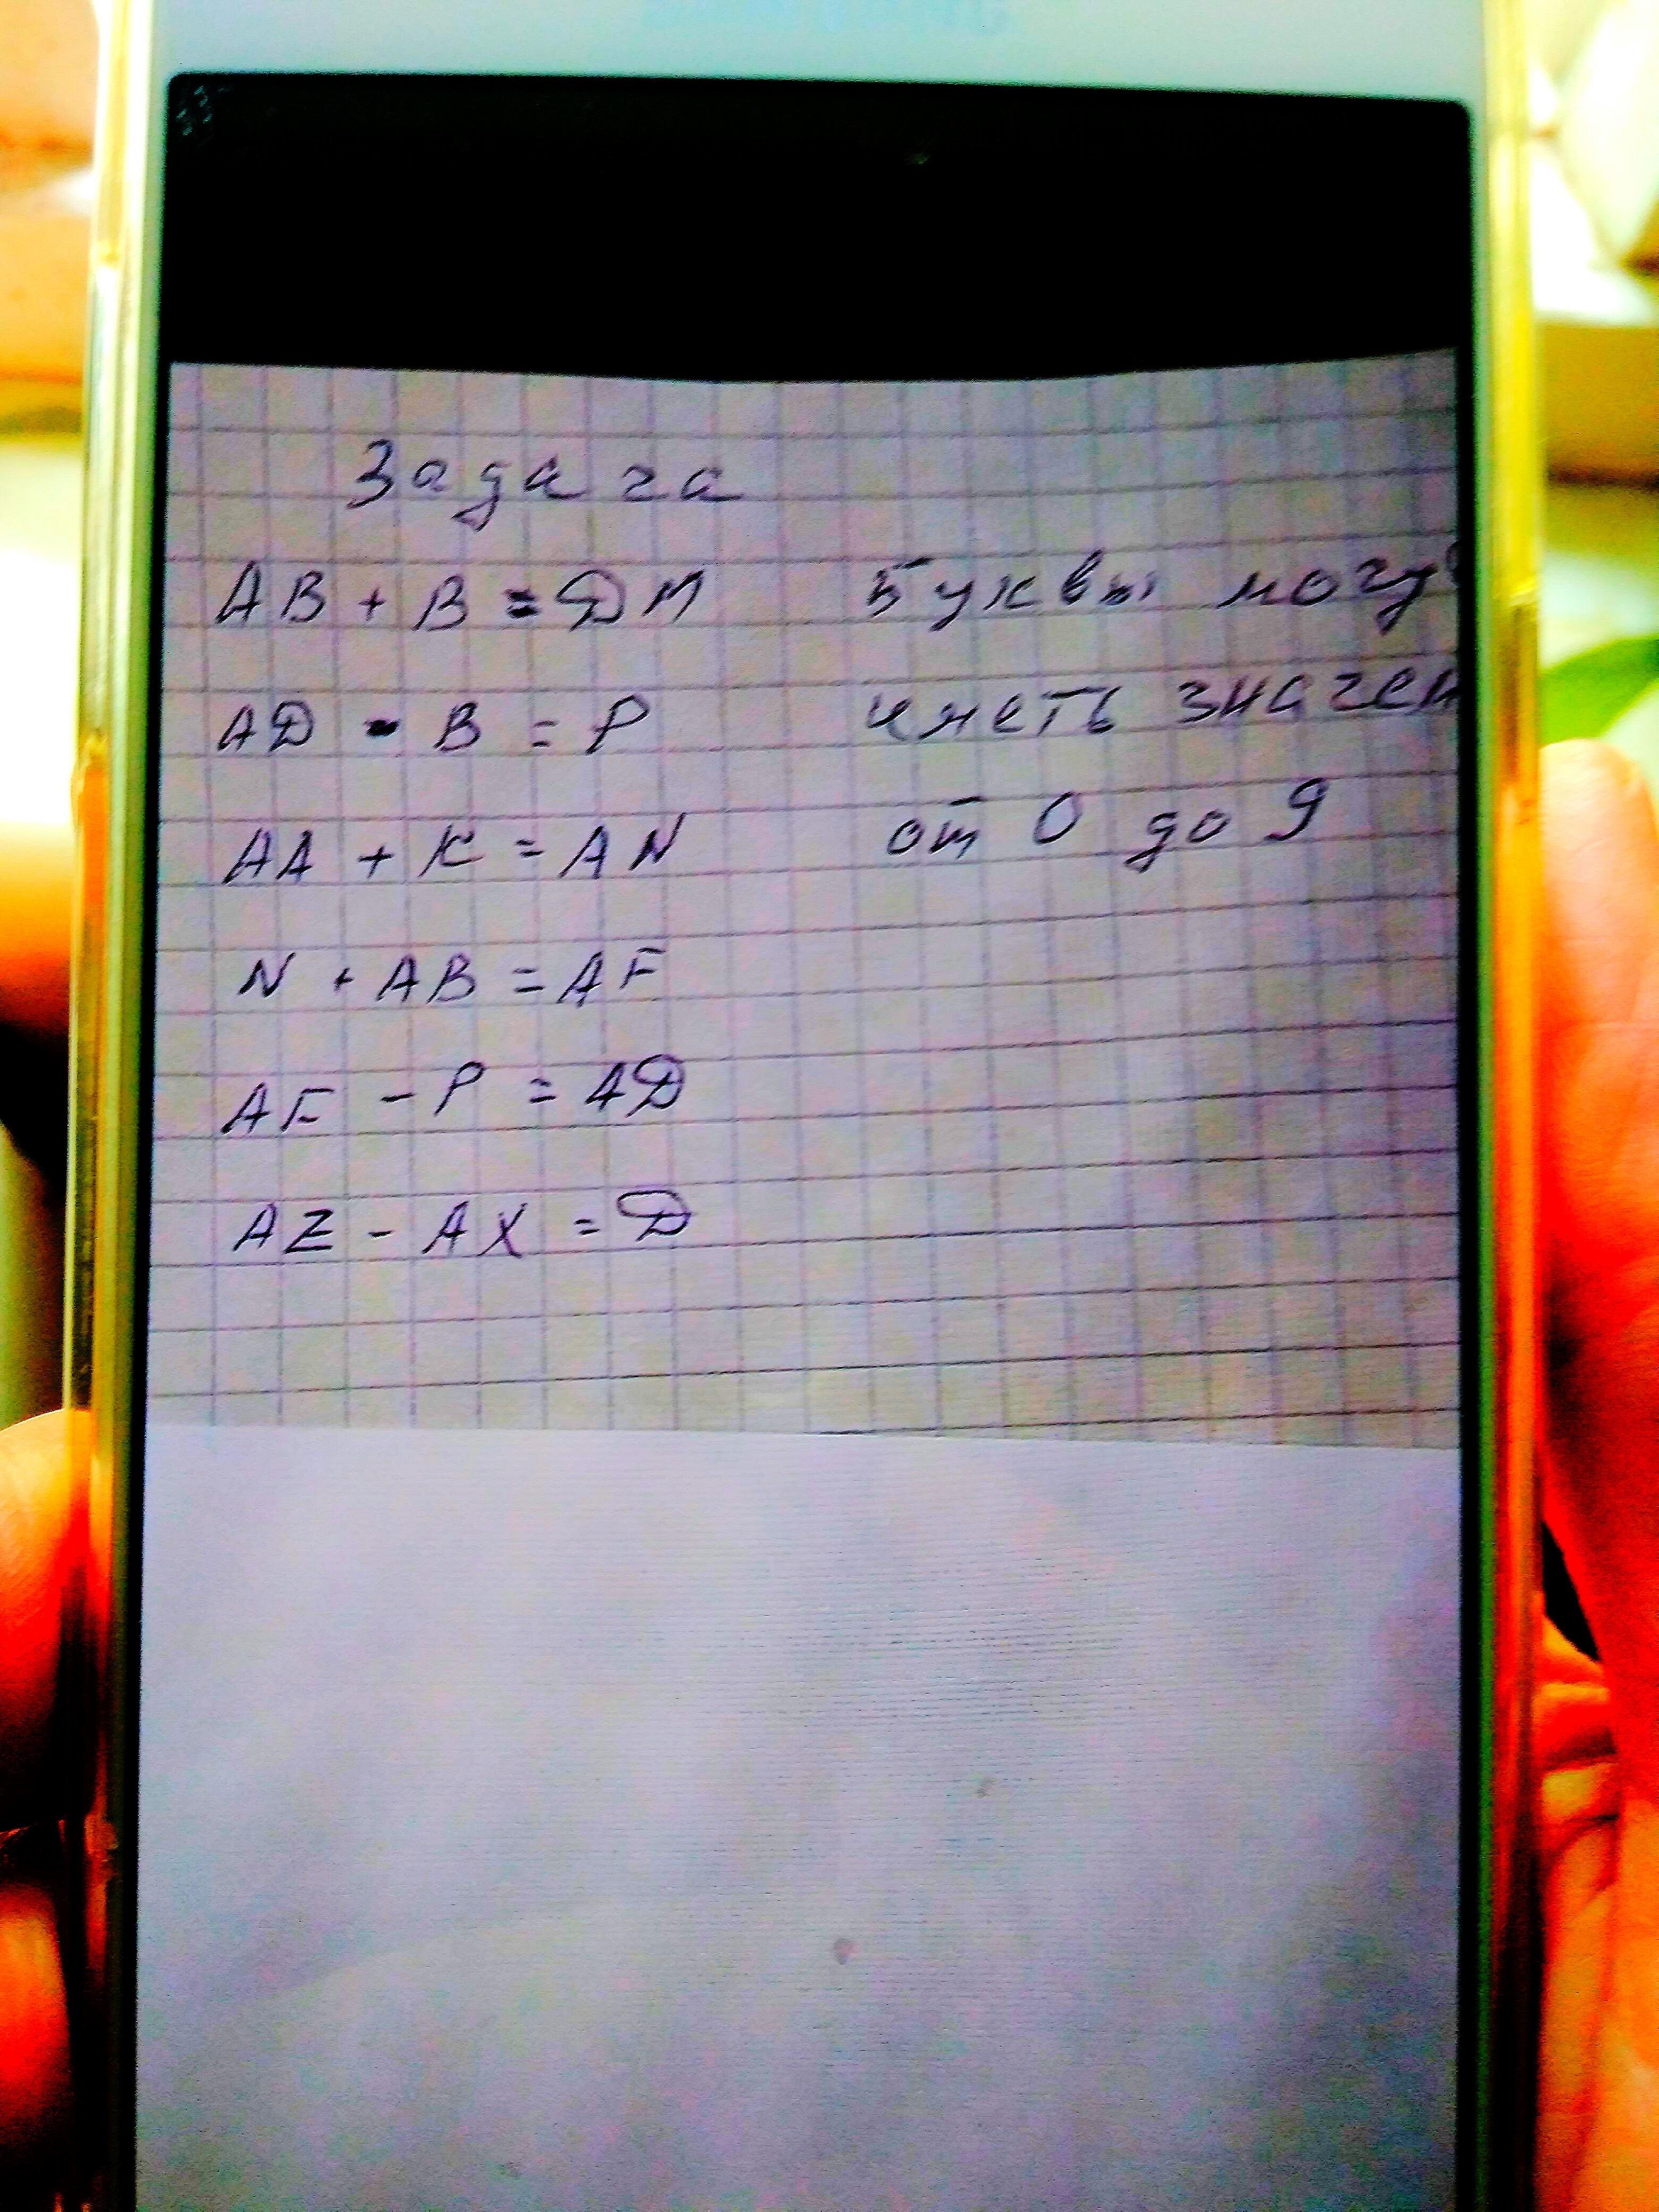 Задача
AB + B = DM
AD - B = P
AA + K = AN
N + AB = AF
AF - P = AD
AZ - AX = D
Буквы могу
иметь значен
от 0 до 9